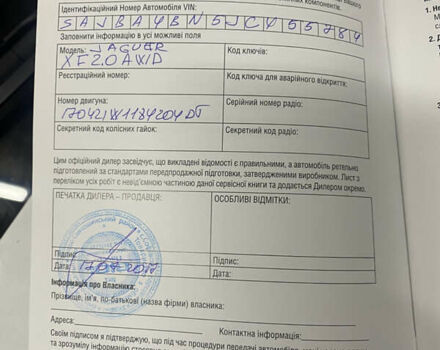 компонентів.
Ідентифікаційний Номер Автомобіля VIN:
SAJBA4BN5JCY55784
Заповнити інформацію в усі можливі поля
Модель: JAGUER
XF2.0 AWD
Код ключів:
Реєстраційний номер:
Код ключа для аварійного відкриття:
Номер двигуна:
170421W1184204DT
Серійний номер радіо:
Секретний код колісних гайок:
Секретний код радіо:
Цим офіційний дилер засвідчує, що викладені відомості є правильними, а автомобіль ретельно
підготовлений за стандартами передпродажної підготовки, затвердженими виробником. Лист з
переліком усіх робіт є невід'ємною частиною даної сервісної книги та додається Дилером окремо.
ПЕЧАТКА ДИЛЕРА – ПРОДАВЦЯ:
ОСОБЛИВІ ВІДМІТКИ:
Підпис:
Підпис:
Дата:
Дата:
Інформація про Власника:
Прізвище, ім'я, по-батькові (назва фірми) власника:
Адреса:
Контактна інформація:
Своїм підписом я підтверджую, що під час процедури передачі автомобіля
та зрозумілу інформацію
1.
2.